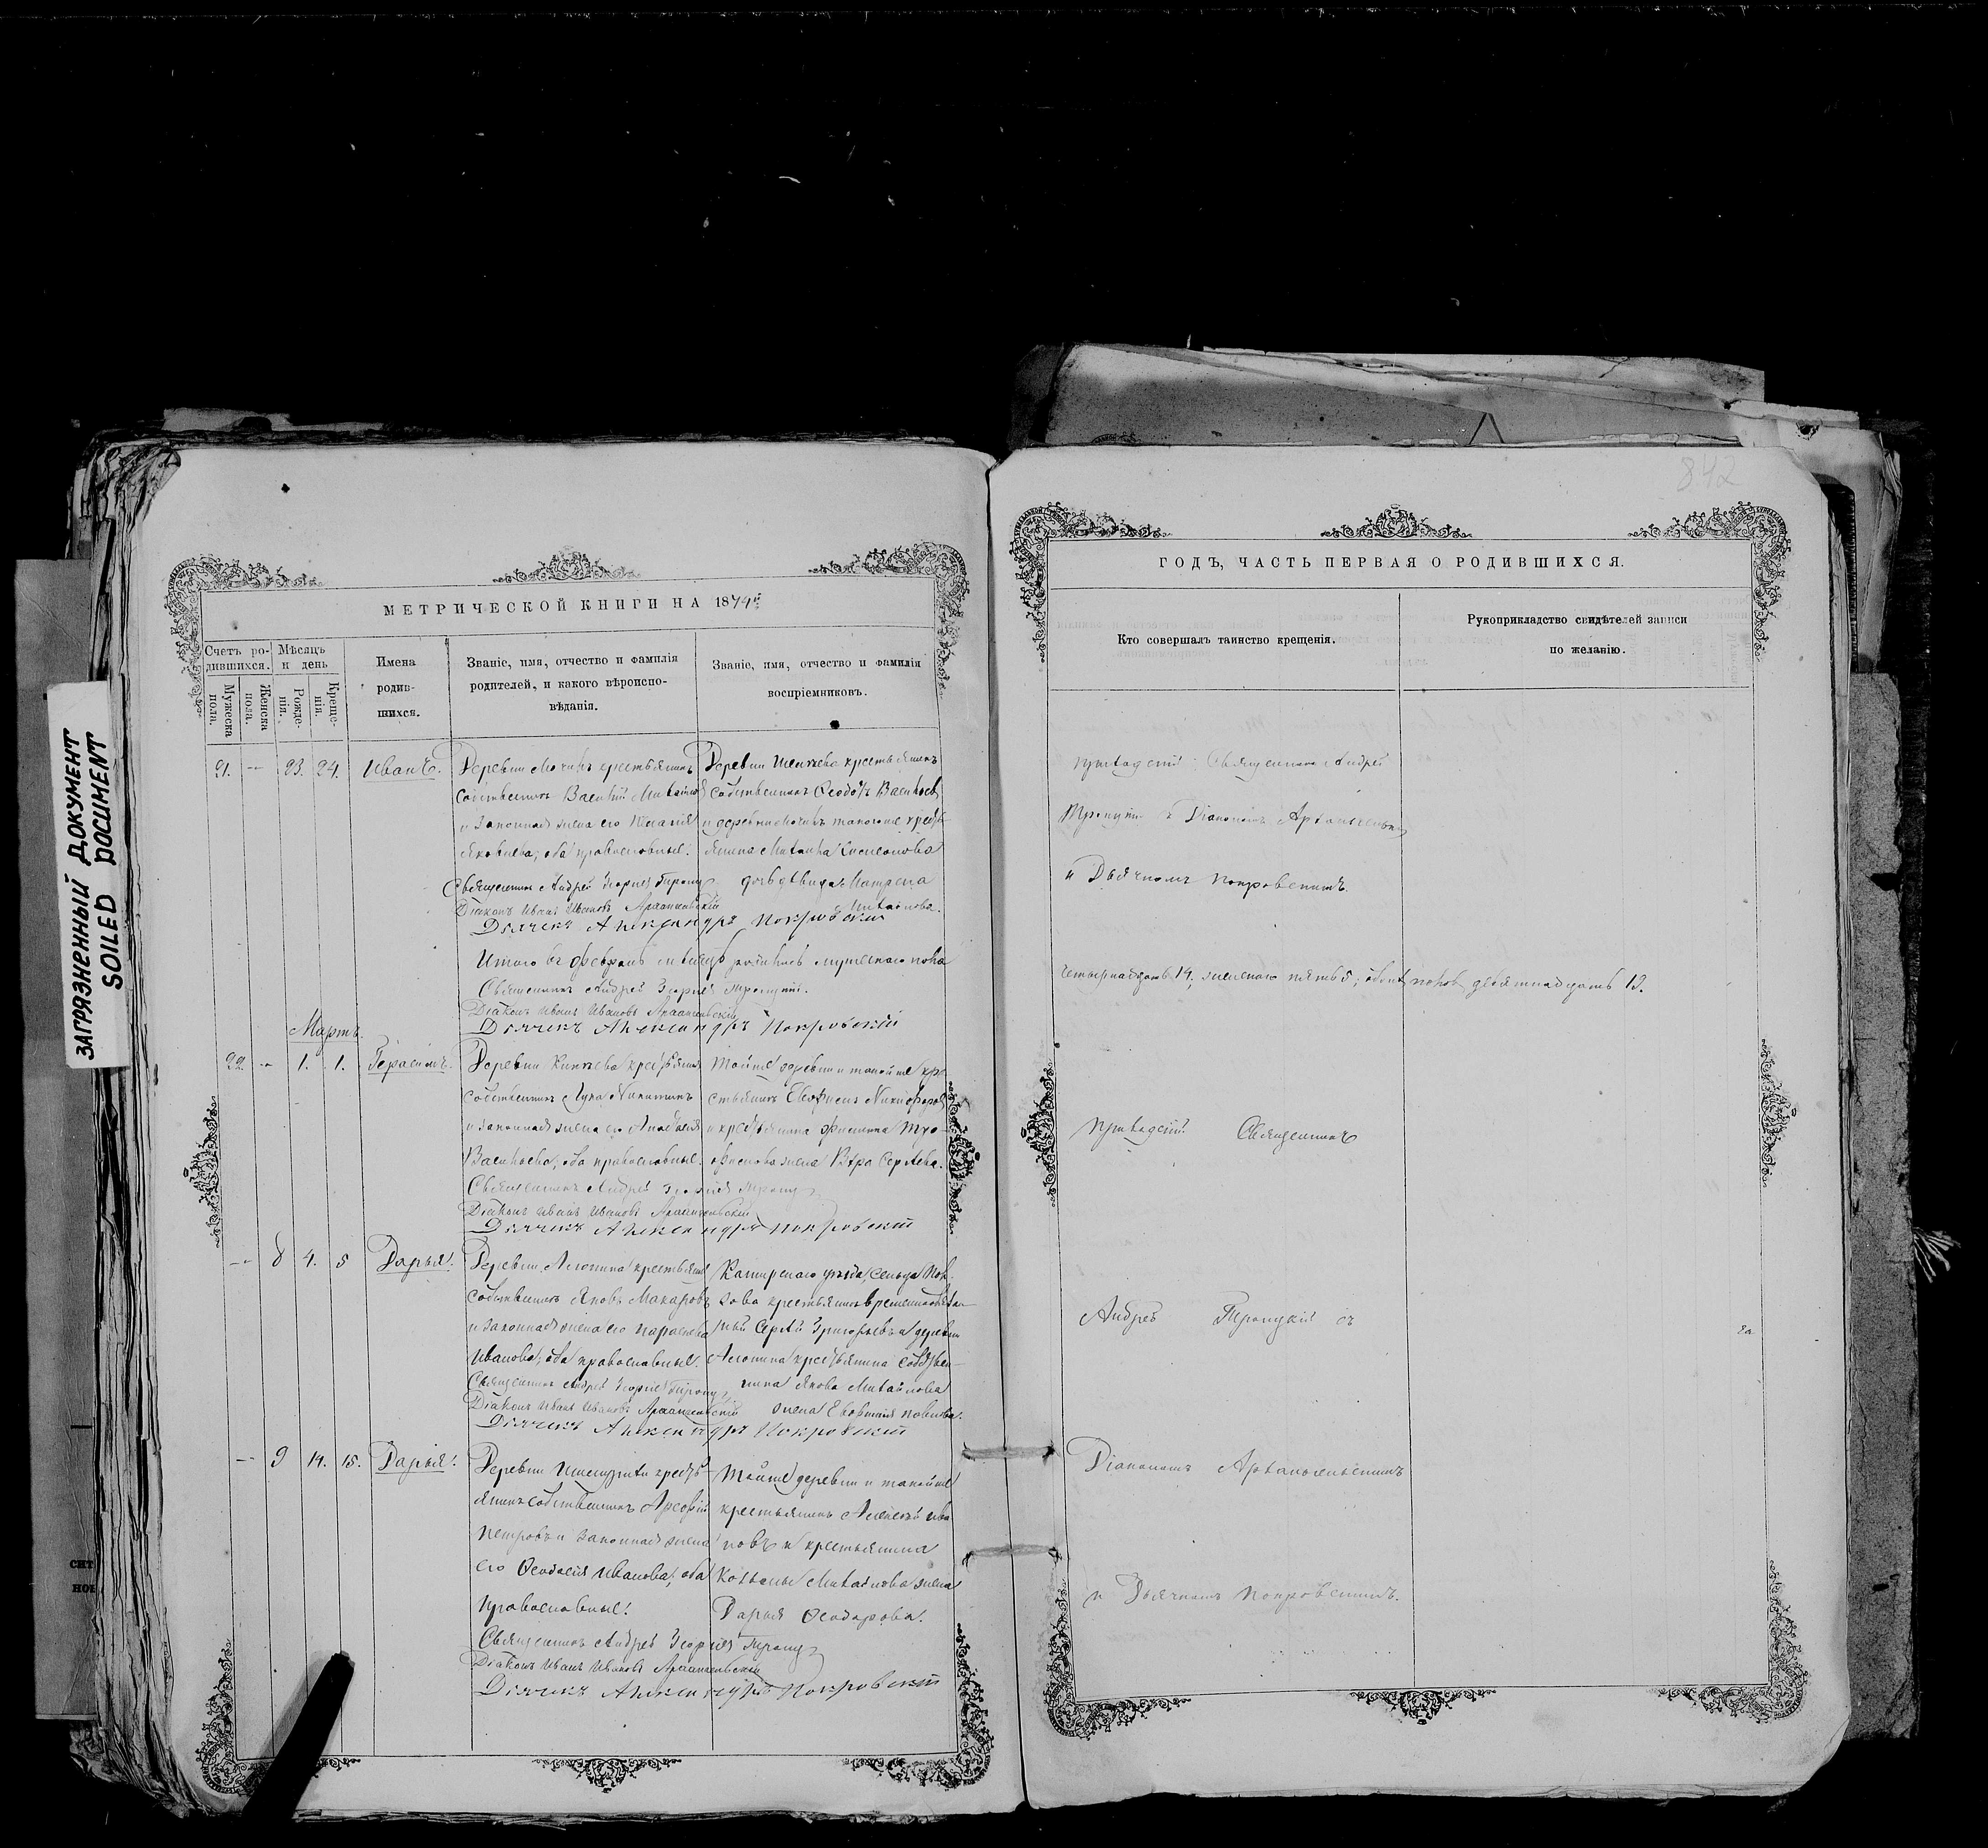 842
ЗАГРЯЗНЕННЫЙ ДОКУМЕНТ
SOILED DOCUMENT
МЕТРИЧЕСКОЙ КНИГИ НА 1874й
Счетъ ро-
дившихся.
Мужеска
пола.
Женска
пола.
Мѣсяцъ
и день
Рожде-
нія.
Креще-
нія.
Имена
родив-
шихся.
Званіе, имя, отчество и фамилія
родителей, и какого вѣроиспо-
вѣданія.
Званіе, имя, отчество и фамилія
воспріемниковъ.
21. — 23. 24. Иванъ.
Деревни крестьянинъ
собственникъ Василій
и законная жена его
Яковлева, оба православные.
Священникъ Андрей Георгіевъ Троиц
Діаконъ Иванъ Ивановъ Архангельскій
Дьячекъ Александръ Покровскій
Деревни крестьянинъ
собственникъ Ѳеодоръ Васильевъ
и деревни
дочь дѣвица Матрена
Михайлова.
Итого въ Февралѣ мѣсяцѣ родилось мужескаго пола
Священникъ Андрей Георгіевъ Троицкій.
Діаконъ Иванъ Ивановъ Архангельскій
Дьячекъ Александръ Покровскій
Мартъ.
22. — 1. 1. Герасимъ.
Деревни крестьянинъ
собственникъ Лука Никитинъ
и законная жена его
Васильева, оба православные.
Священникъ Андрей Георгіевъ Троиц
Діаконъ Иванъ Ивановъ Архангельскій
Дьячекъ Александръ Покровскій
Тойже деревни и такойже кре-
стьянинъ Никифоровъ
и крестьянина Филиппа Тро-
фимова жена Вѣра Сергѣева.
— 8 4. 5 Дарья.
Деревни крестьянинъ
собственникъ Яковъ Макаровъ
и законная жена его Параскева
Иванова, оба православные.
Священникъ Андрей Георгіевъ Троиц
Діаконъ Иванъ Ивановъ Архангельскій
Дьячекъ Александръ Покровскій
Каширскаго уѣзда, сельца
крестьянинъ временнообязан-
ный Сергѣй Григорьевъ и деревни
крестьянина собствен-
ника Якова Михайлова
жена
— 9 14. 15. Дарья.
Деревни кресть-
янинъ собственникъ
Петровъ и законная жена
его Ѳеодосія Иванова, оба
православные.
Священникъ Андрей Георгіевъ Троиц
Діаконъ Иванъ Ивановъ Архангельскій
Дьячекъ Александръ Покровскій
Тойже деревни и такойже
крестьянинъ Алексѣй Ива-
новъ и крестьянина
Михайлова жена
Дарья Ѳеодорова.
ГОДЪ, ЧАСТЬ ПЕРВАЯ О РОДИВШИХСЯ.
Кто совершалъ таинство крещенія.
Рукоприкладство свидѣтелей записи
по желанію.
Приходскій Священникъ Андрей
Троицкій съ Діакономъ Архангельскимъ
и Дьячкомъ Покровскимъ.
четырнадцать 14, женскаго пять 5, обоего половъ девятнадцать 19.
Приходскій Священникъ
Андрей Троицкій съ
Діакономъ Архангельскимъ
и Дьячкомъ Покровскимъ.